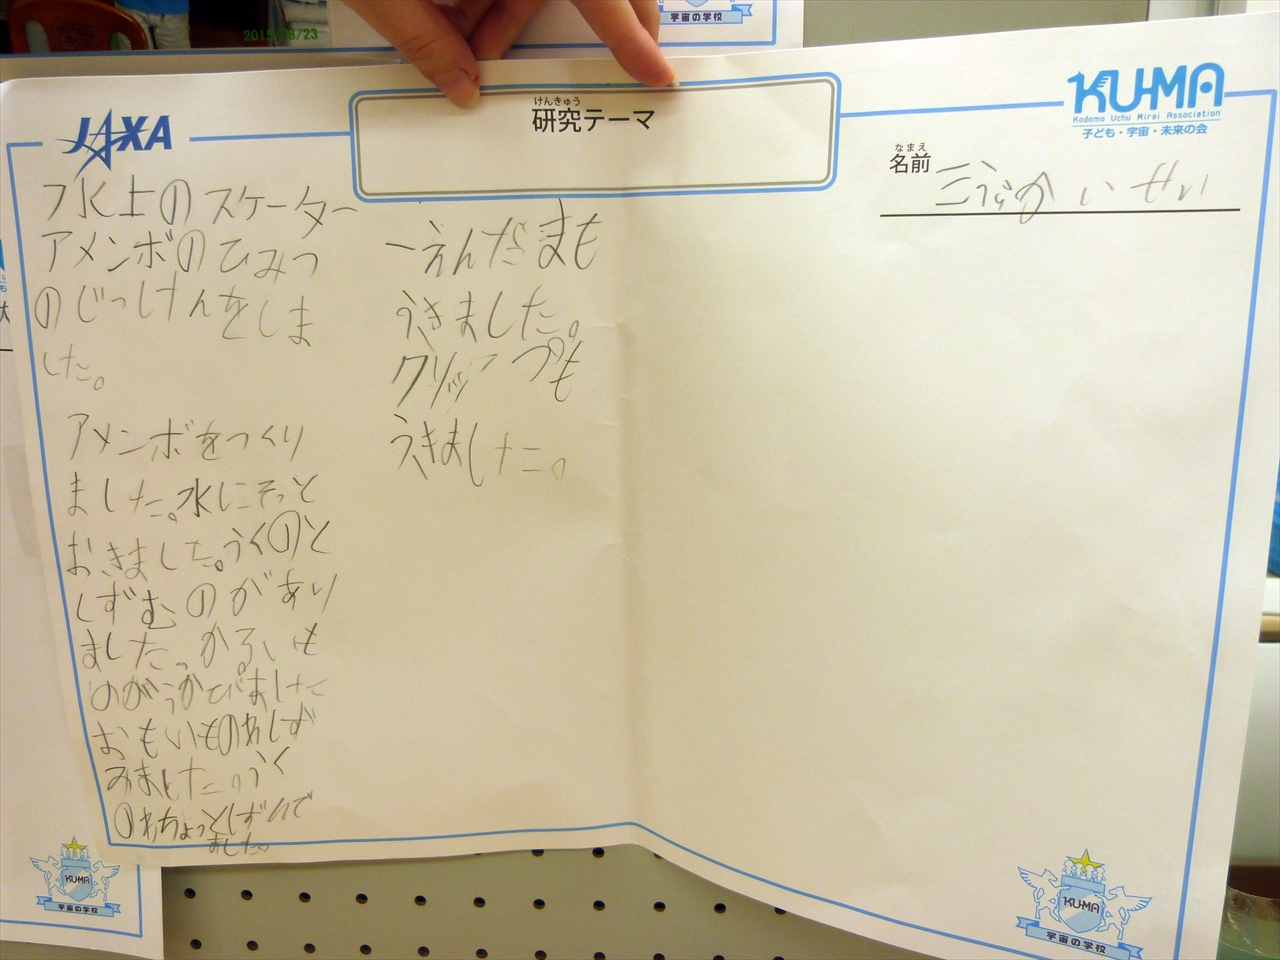 宇宙の学校
2015/08/23
JAXA
けんきゅう
研究テーマ
KU-MA
Kodomo Uchu Mirai Association
子ども・宇宙・未来の会
なまえ
名前
水上のスケーター
アメンボのひみつ
のじっけんをしま
した。
アメンボをつくり
ました。水にそっと
おきました。うくのと
しずむのがあり
ました。かるいも
のがうかびました
おもいものわしず
みました
うく
のわちょっとしずんで
ました。
一えんだまも
うきました。
クリップも
うきました。
KU-MA
宇宙の学校
KU-MA
宇宙の学校